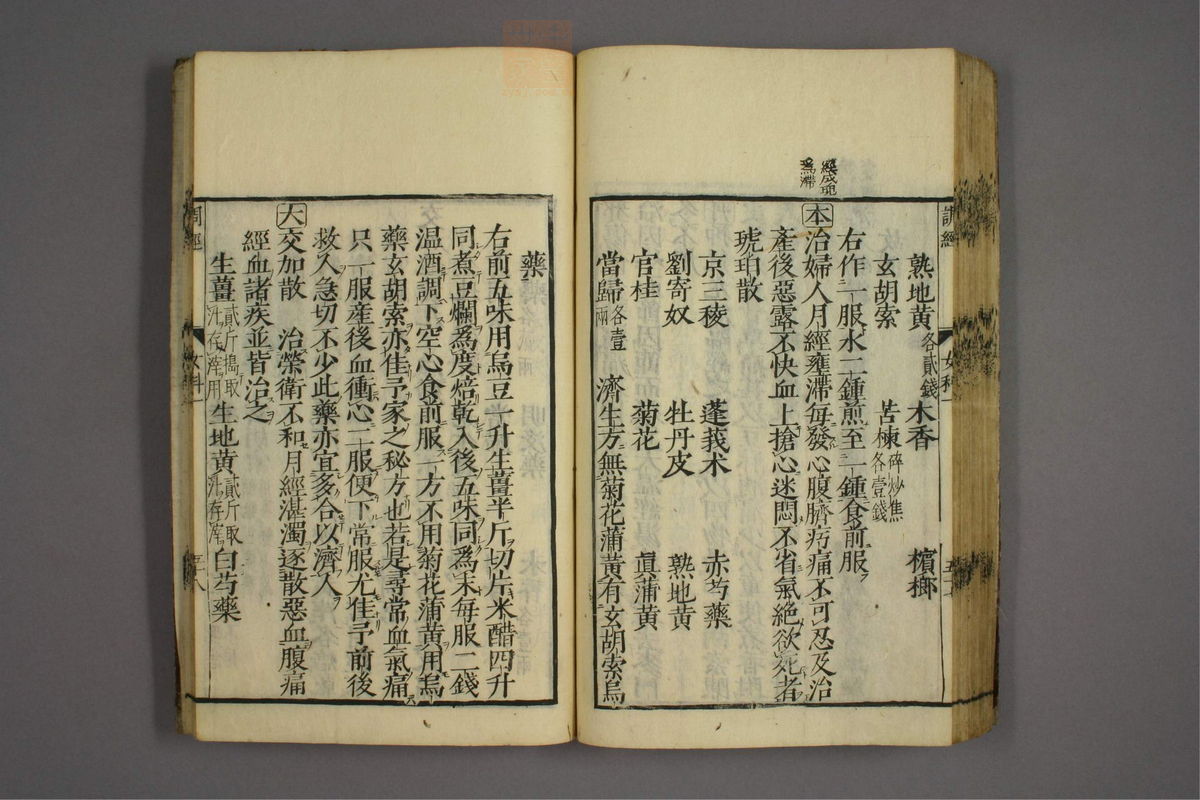 經成塊
爲滯
調經
女科
熟地黄各貳錢 木香 檳榔
玄胡索 苦楝碎炒焦各壹錢
右作一服水二鍾煎至一鍾食前服
本 治婦人月經壅滯每發心腹臍㽲痛不可忍及治
產後惡露不快血上搶心迷悶不省氣絕欲死者
琥珀散
京三稜 蓬莪朮 赤芍藥
劉寄奴 牡丹皮 熟地黄
官桂 菊花 眞蒲黄
當歸各壹兩 濟生方無菊花蒲黄有玄胡索烏
藥
右前五味用烏豆一升生薑半斤切片米醋四升
同煮豆爛爲度焙乾入後五味同爲末每服二錢
温酒調下空心食前服一方不用菊花蒲黄用烏
藥玄胡索亦佳予家之秘方也若是尋常血氣痛
只一服產後血衝心二服便下常服尤佳予前後
救人急切不少此藥亦宜多合以濟人
大 交加散 治榮衛不和月經湛濁逐散惡血腹痛
經血諸疾並皆治之
生薑貳斤搗取汁存滓用 生地黄貳斤取汁存滓 白芍藥
調經
女科
五八